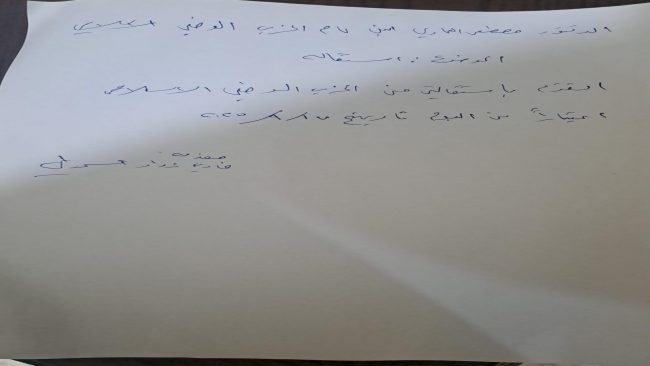 الدكتور مصطفى العماوي امين عام الحزب الوطني الاسلامي
الموضوع : استقاله
اتقدم بإستقالتي من الحزب الوطني الاسلامي
اعتباراً من اليوم تاريخ ٢٠٢٥/٨/٧